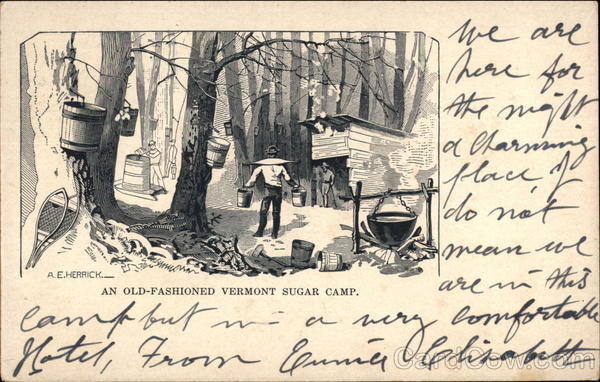 A.E. HERRICK
AN OLD-FASHIONED VERMONT SUGAR CAMP.
We are
here for
the night
a charming
place if
do not
mean we
are in this
camp but in a very comfortable
Hotel, From Eunice Elizabeth
CardCow.com